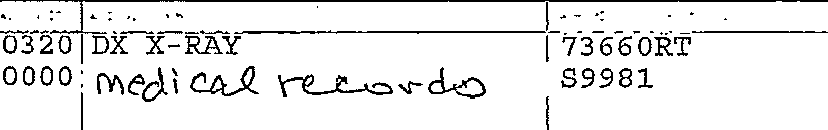 0320 DX X-RAY 73660RT
0000 medical records S9981